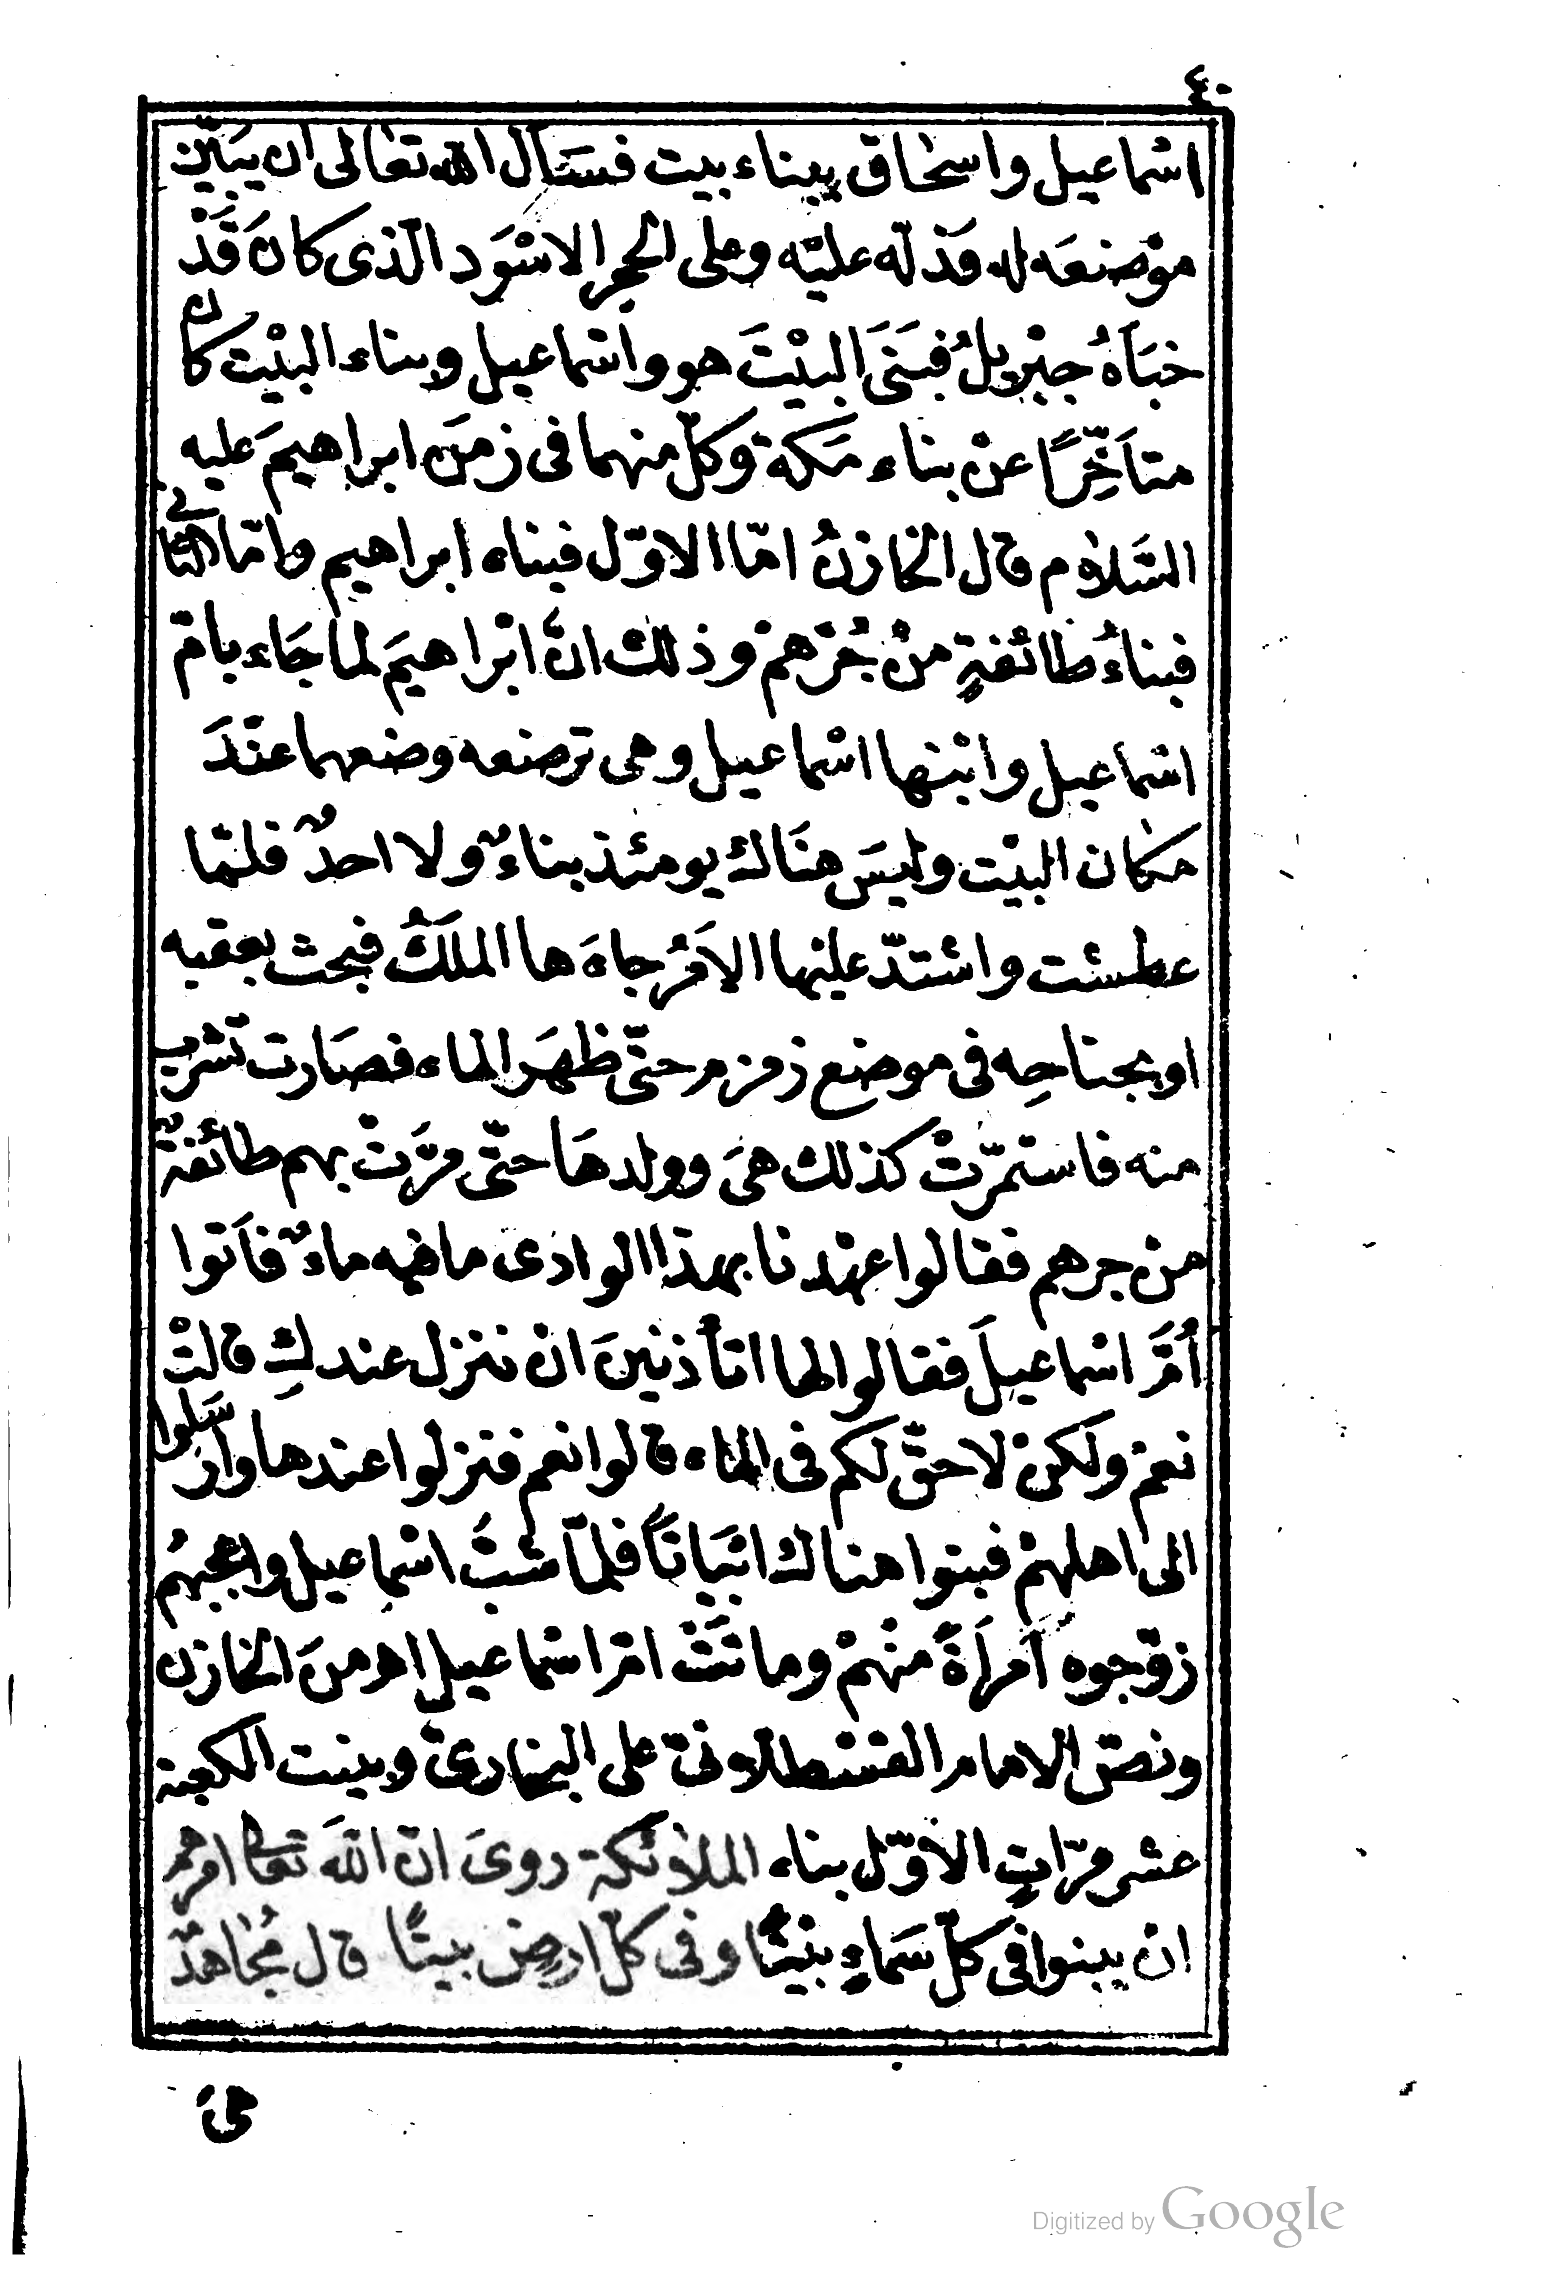 ٤٠
اسْماعيل واسحٰاق ببناء بيت فسَئَاَل الله تعٰالى ان يبَيّن
موْضعَه له فدَلّه عليْه وعلى الحجر الاسْوَد الّذى كانَ قَدْ
خبَاَهُ جبْريلُ فبَنَى البيْتَ هو واسْماعيل وبناء البيْت كان
متاَخّرًا عنْ بناء مَكة وكلّ منهما فى زمَن ابراهيمَ عليه
السَّلاٰم قال الخازنُ امّا الاوّل فبناه ابراهيم وامّا الثانى
فبناءُ طائفةٍ منْ جُرْهمْ وذلك انّ ابْراهيمَ لما جَاء بامّ
اسْماعيل وابْنها اسْماعيل وهى ترضعه وضعهما عنْدَ
مكان البيْت وليسَ هنَاك يومئذ بناءٌ ولا احدٌ فلمّا
عطشت واشتدّ عليْها الاَمْرُ جاءَ ها الملَكُ فبحث بعقبه
او بجناحِه فى موضع زمزم حتّى ظهَر الماء فصَارت تشرب
منه فاستمرّتْ كذلك هىَ وولدهَا حتّى مرَّتْ بهم طائفةٌ
منْ جرهم فقالوا عهْدنا بهذا الوادى ما فيه ماءٌ فاَتوا
اُمَّ اسْماعيلَ فقالوا لها اتأذنينَ انْ ننزل عندكِ قالتْ
نعمْ ولكنْ لا حقّ لكم فى الماء قالوا نعم فنزلوا عندها وارْسَلوا
الى اهلهمْ فبنوا هناك ابْيَاتًا فلمّا شبَّ اسْماعيل واعْجبهُم
زوّجوه امْراَةً منْهمْ وماتَتْ امّ اسْماعيل اهـ منَ الخازن
ونصّ الامام القسْطلاّنىّ على البخارىّ وبنيت الكعبة
عشر مرّاتٍ الاوّل بناء الملاٰئكة روىَ انّ اللهَ تعالى امرهم
ان يبنوا فى كلّ سَماءٍ بيْتًا وفى كلّ ارضٍ بيتًا قال مُجٰاهدٌ
هىَ
Digitized by Google